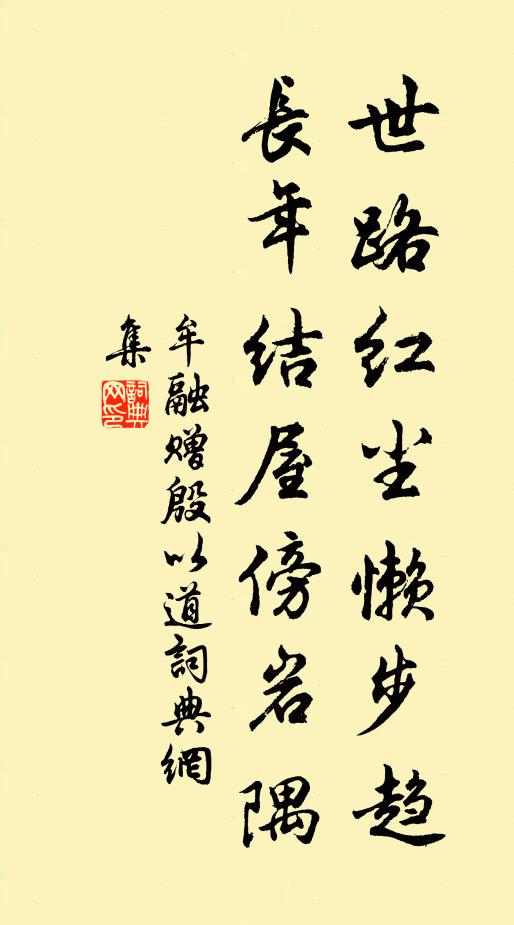 世路红尘懒步趋
長年结屋傍岩隅
牟融赠殷以道詞典網
集
詞典网印